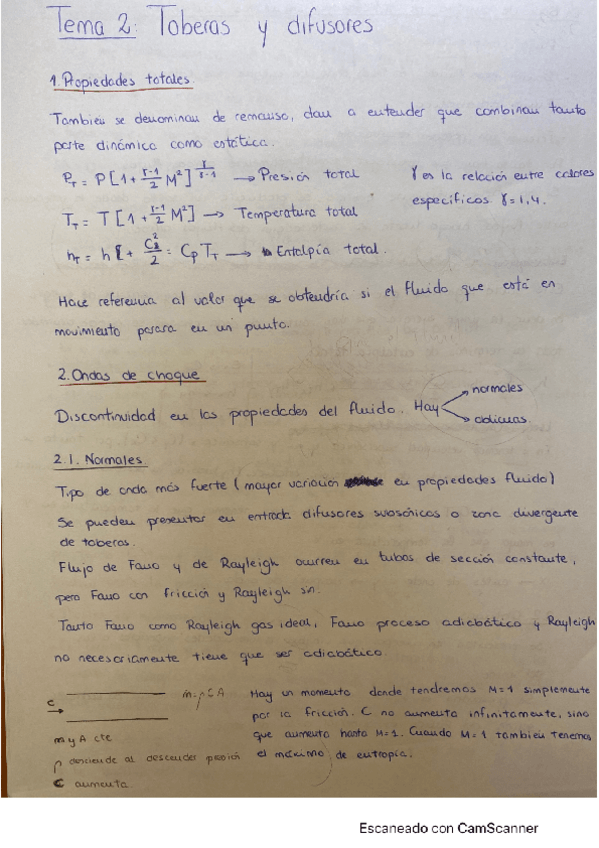 Tema 2: Toberas y difusores
1. Propiedades totales
También se denominan de remanso, dan a entender que combinan tanto
parte dinámica como estática.
P_T = P[1 + (γ-1)/2 M²]^(γ/(γ-1)) → Presión total
γ es la relación entre calores
específicos γ = 1,4.
T_T = T[1 + (γ-1)/2 M²] → Temperatura total
h_T = h + C²/2 = Cp T_T → Entalpía total.
Hace referencia al valor que se obtendría si el fluido que está en
movimiento parara en un punto.
2. Ondas de choque
Discontinuidad en las propiedades del fluido. Hay
normales
oblicuas
2.1. Normales
Tipo de onda más fuerte (mayor variación en propiedades fluido)
Se pueden presentar en entrada difusores subsónicos o zona divergente
de toberas.
Flujo de Fano y de Rayleigh ocurren en tubos de sección constante,
pero Fano con fricción y Rayleigh sin.
Tanto Fano como Rayleigh gas ideal, Fano proceso adiabático y Rayleigh
no necesariamente tiene que ser adiabático.
C →
m = ρ C A
m y A cte
ρ desciende al descender presión
C aumenta
Hay un momento donde tendremos M=1 simplemente
por la fricción. C no aumenta infinitamente, sino
que aumenta hasta M=1. Cuando M=1 también tenemos
el máximo de entropía.
Escaneado con CamScanner